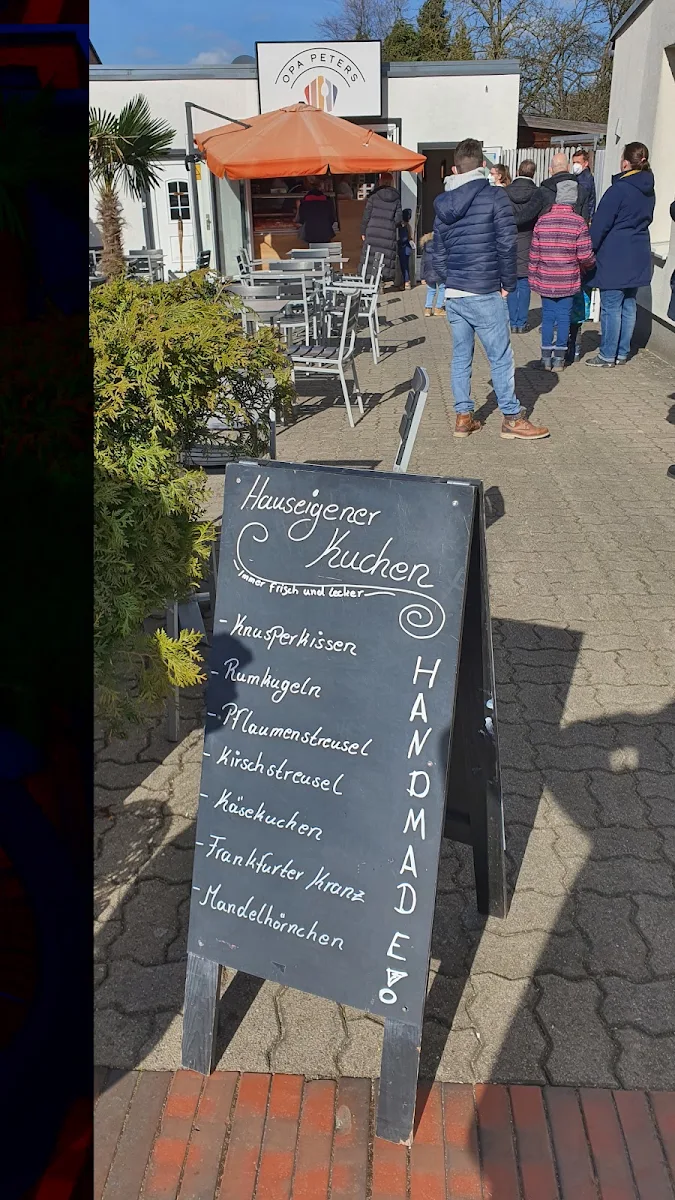 OPA PETERS
Hauseigener
Kuchen
immer frisch und lecker
- Knusperkissen
- Rumkugeln
- Pflaumenstreusel
- Kirschstreusel
- Käsekuchen
- Frankfurter Kranz
- Mandelhörnchen
HANDMADE!